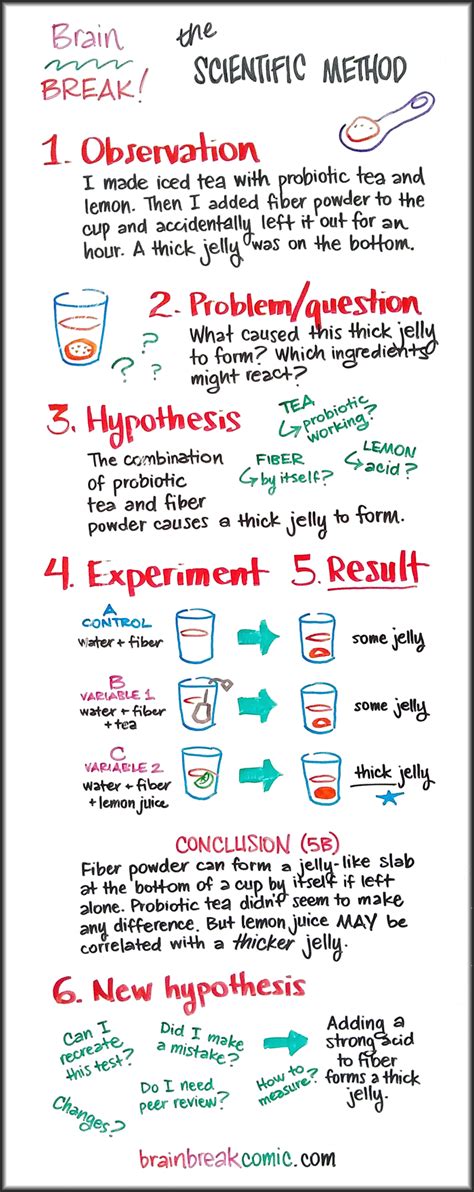 Brain
BREAK!
the
SCIENTIFIC METHOD
1. Observation
I made iced tea with probiotic tea and
lemon. Then I added fiber powder to the
cup and accidentally left it out for an
hour. A thick jelly was on the bottom.
2. Problem/question
What caused this thick jelly
to form? Which ingredients
might react?
? ? ?
3. Hypothesis
TEA
probiotic
working?
FIBER
by itself?
LEMON
acid?
The combination
of probiotic
tea and fiber
powder causes a thick jelly to form.
4. Experiment
5. Result
A
CONTROL
water + fiber
some jelly
B
VARIABLE 1
water + fiber
+ tea
some jelly
C
VARIABLE 2
water + fiber
+ lemon juice
thick jelly
CONCLUSION (5B)
Fiber powder can form a jelly-like slab
at the bottom of a cup by itself if left
alone. Probiotic tea didn't seem to make
any difference. But lemon juice MAY be
correlated with a thicker jelly.
6. New hypothesis
Can I
recreate
this test?
Did I make
a mistake?
Changes?
Do I need
peer review?
How to
measure?
Adding a
strong acid
to fiber
forms a thick
jelly.
brainbreakcomic.com